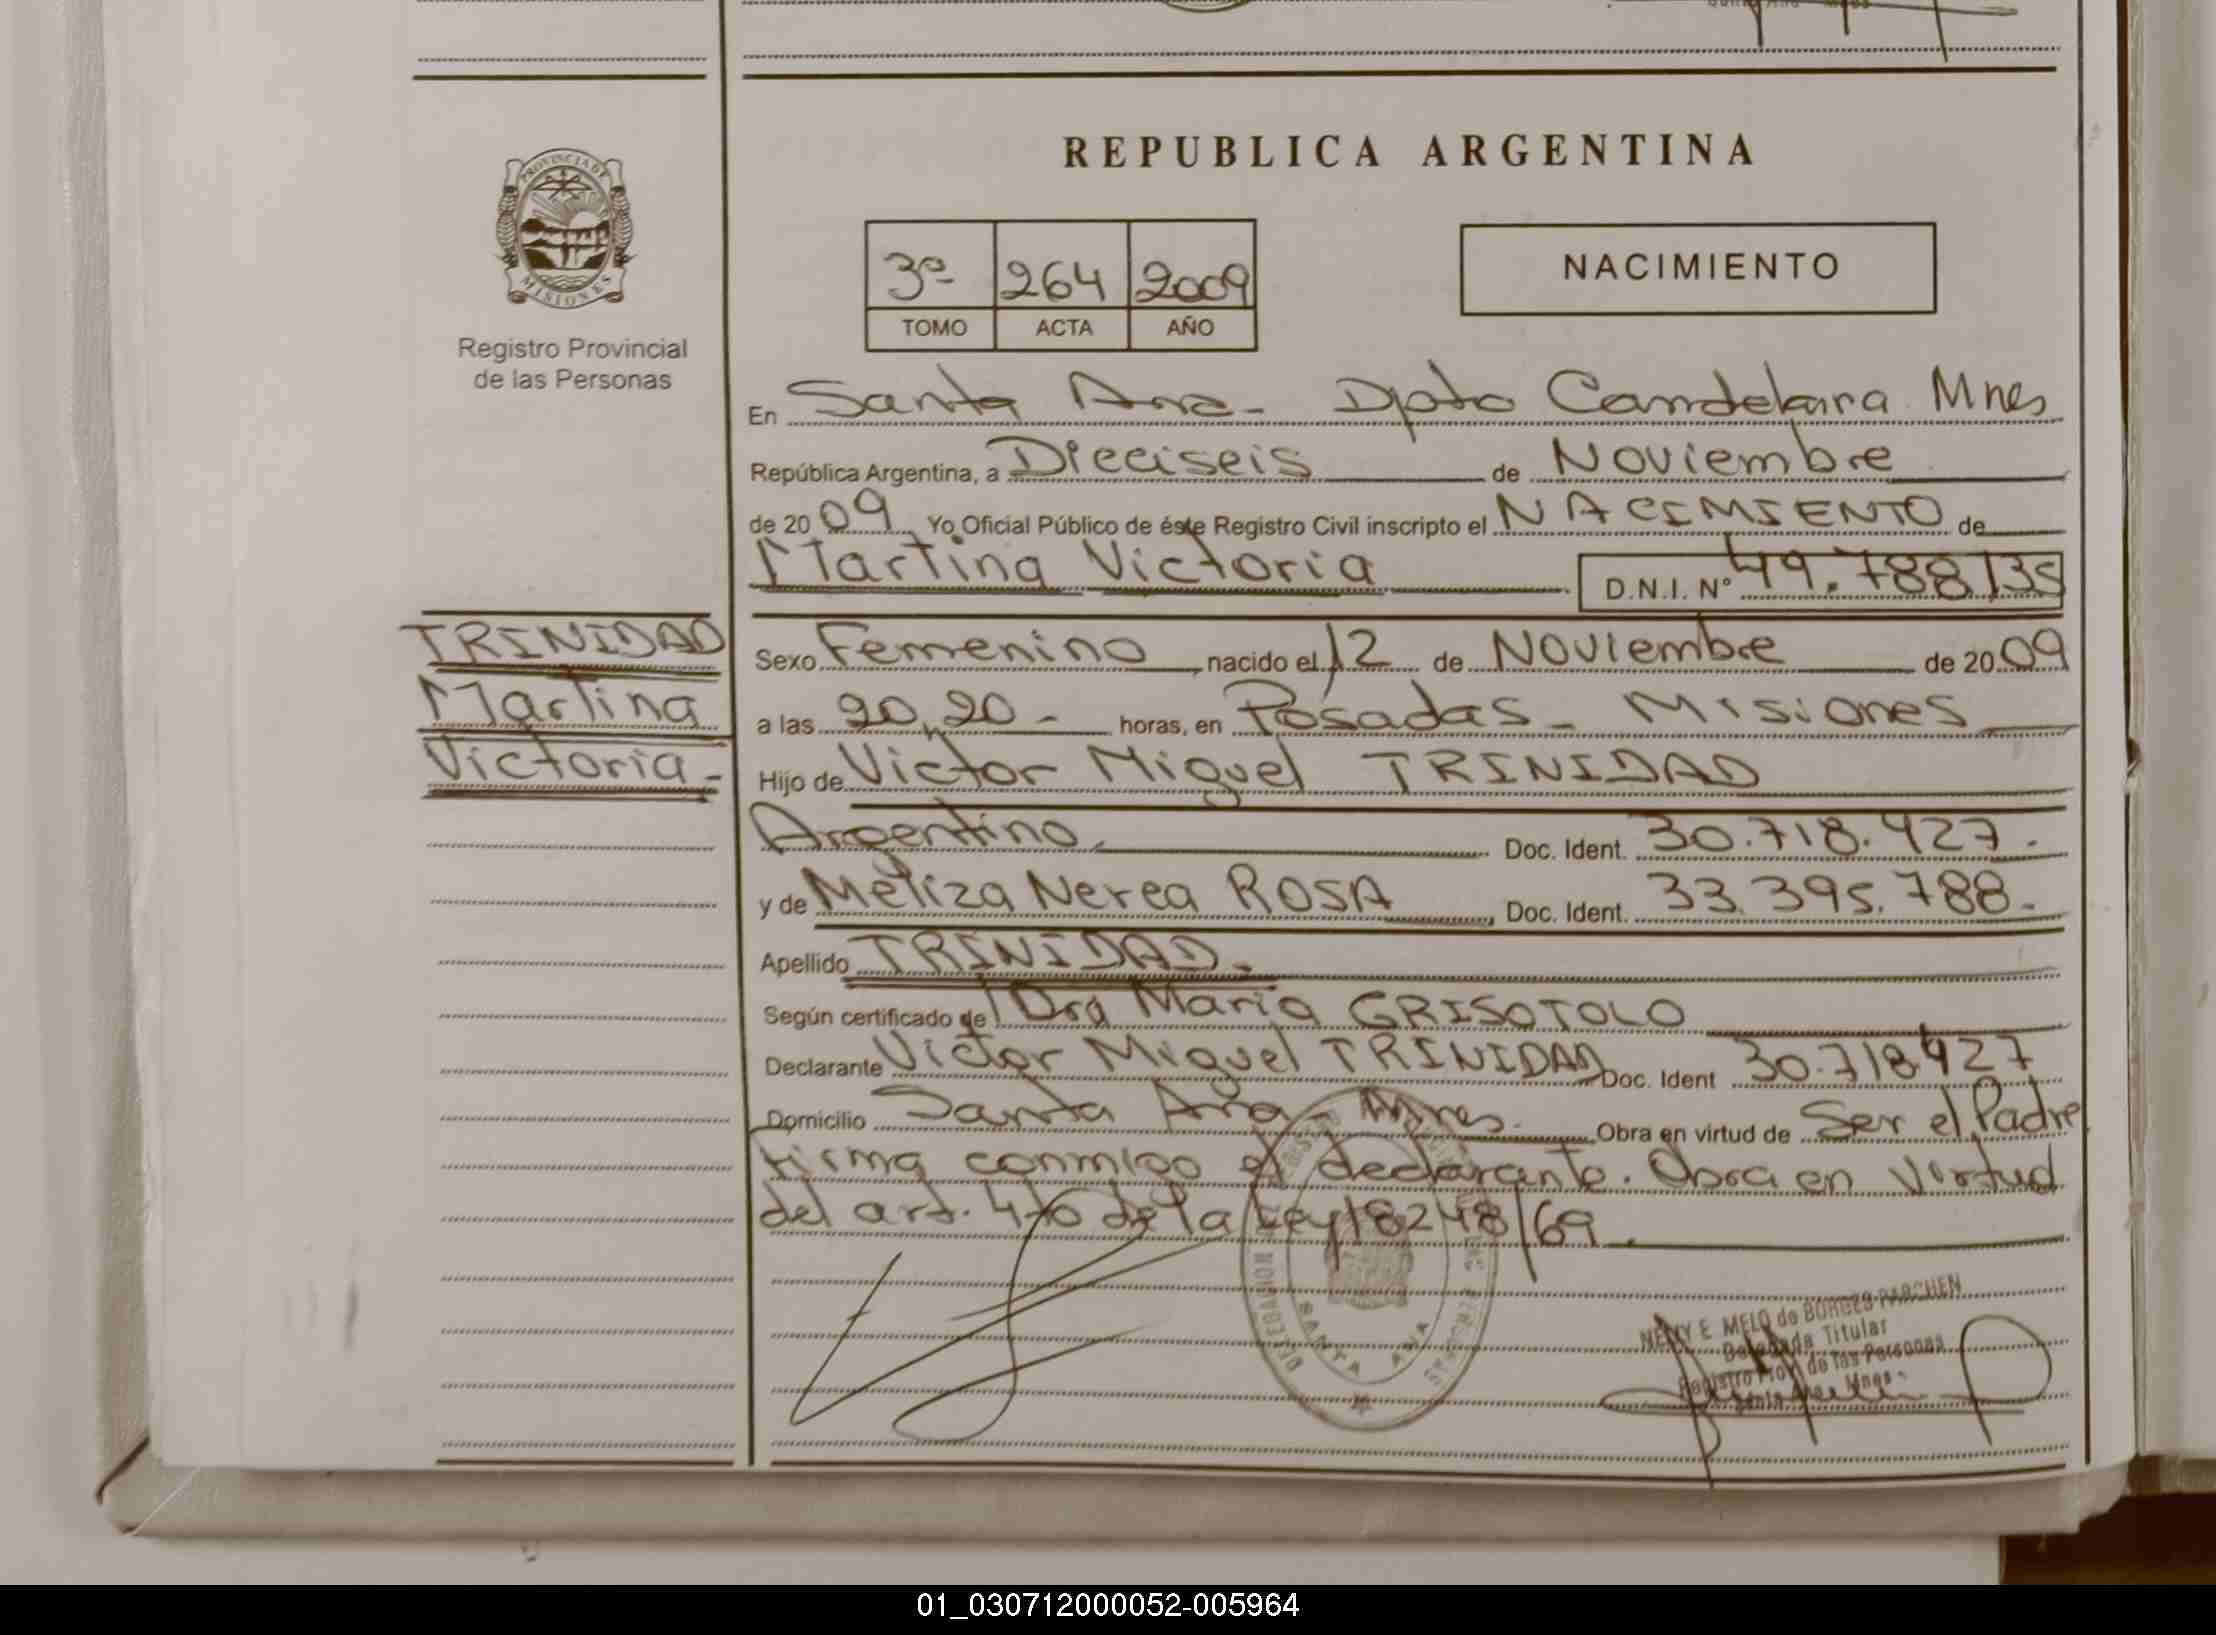 REPUBLICA ARGENTINA
PROVINCIA DE
MISIONES
Registro Provincial
de las Personas
3º 264 2009
TOMO ACTA AÑO
NACIMIENTO
En Santa Ana - Dpto Candelaria Mnes
República Argentina, a Dieciseis de Noviembre
de 2009 Yo Oficial Público de éste Registro Civil inscripto el NACIMIENTO de
Martina Victoria D.N.I. Nº 49.788135
TRINIDAD
Martina
Victoria -
Sexo Femenino, nacido el 12 de Noviembre de 2009
a las 20,20 - horas, en Posadas - Misiones
Hijo de Victor Miguel TRINIDAD
Argentino, Doc. Ident. 30.718.427.
y de Meliza Nerea ROSA, Doc. Ident. 33.395.788.
Apellido TRINIDAD.
Según certificado de Dra Maria GRISOTOLO
Declarante Victor Miguel TRINIDAD Doc. Ident 30.718.427
Domicilio Santa Ana - Mnes. Obra en virtud de Ser el Padre
firma conmigo el declarante. Obra en Virtud
del art. 4to de la Ley 18248/69.
SANTA ANA
E. MELO de BORGES PARCHEN
Delegada Titular
Registro Prov. de las Personas
Santa Ana - Mnes -
01_030712000052-005964